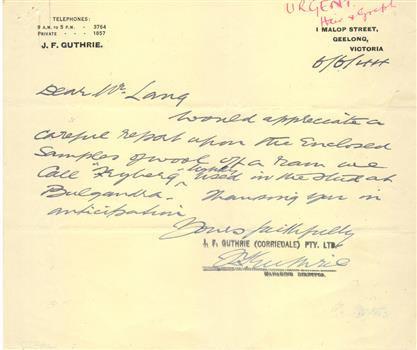 TELEPHONES:
9 A.M. TO 5 P.M. - 3764
PRIVATE - - 1857
J. F. GUTHRIE.
URGENT.
1 MALOP STREET,
GEELONG,
VICTORIA
6/6/44
Dear Mr Lang
Would appreciate a
careful report upon the Enclosed
Samples of wool off a ram we
Call "Fryberg" used in the Stud at
Bulgandra. Thanking you in
anticipation
Yours faithfully
J. F. GUTHRIE (CORRIEDALE) PTY. LTD.
J F Guthrie
MANAGING DIRECTOR.